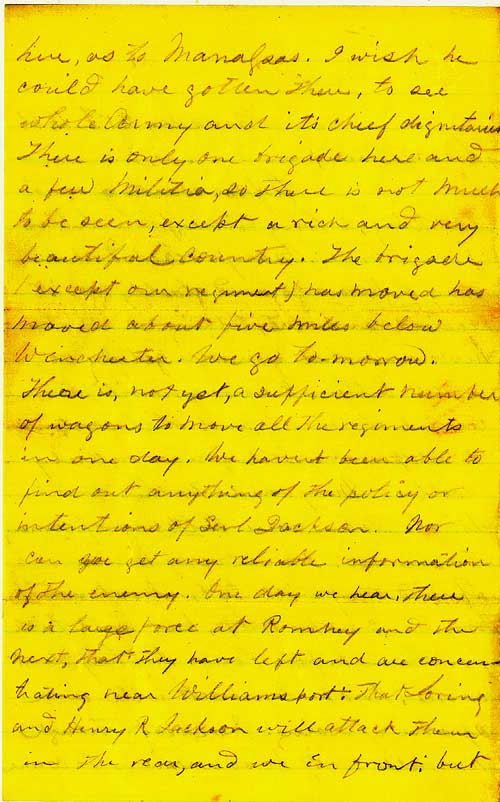 here, as to Manassas. I wish he
could have gotten there, to see
whole Army and it's chief dignitaries
There is only one brigade here and
a few Militia, so there is not much
to be seen, except a rich and very
beautiful country. The brigade
(except our regiment) has moved has
moved about five miles below
Winchester. We go to-morrow.
There is, not yet, a sufficient number
of wagons to move all the regiments
in one day. We havent been able to
find out anything of the policy or
intentions of Genl Jackson. Nor
can we get any reliable information
of the enemy. One day we hear, there
is a large force at Romney and the
next, that they have left and are concen
trating near Williamsport. That Loring
and Henry R Jackson will attack them
in the rear, and we in front. but